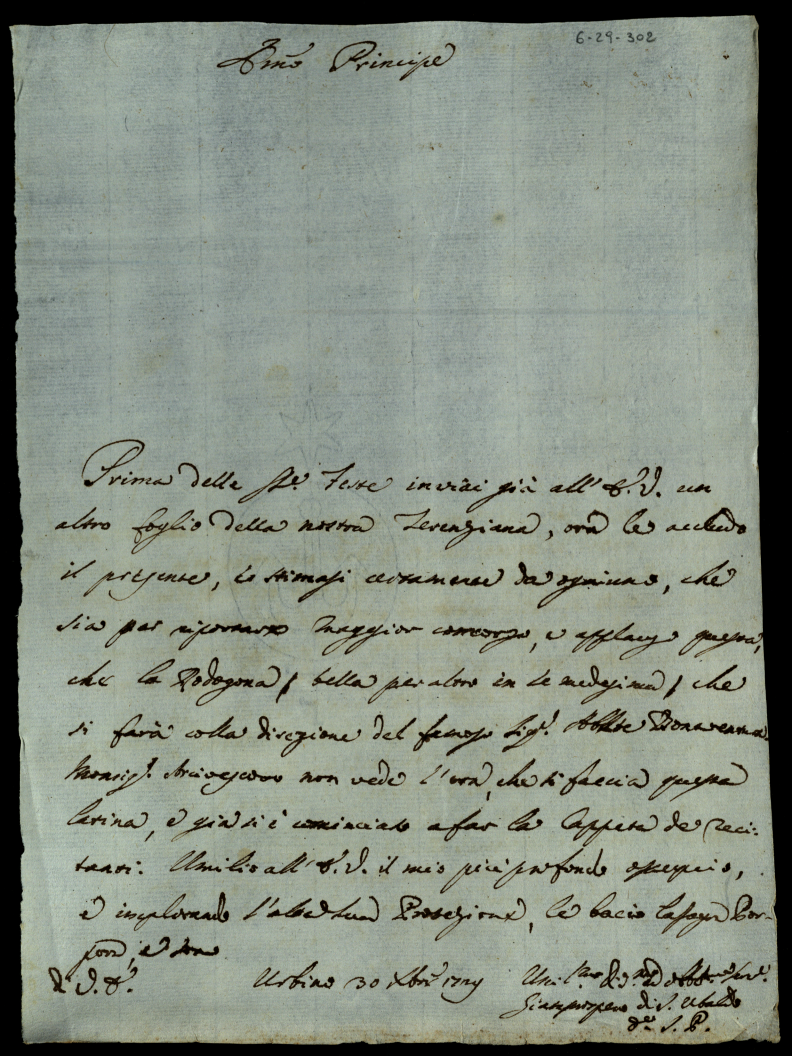 6-29-302
Emo Principe
Prima delle Ste. Feste inviai già all' E.V. un
altro foglio della nostra Terenziana, ora le accludo
il presente, e stimasi certamente da ogniuno, che
sia per riportare maggior concorso, e applauso questa,
che la Rodogona / bella per altro in se medesima / che
si farà colla direzione del famoso Sigr. Abbate Bonaventura.
Monsigr. Arcivescovo non vede l'ora, che si faccia questa
latina, e già si è cominciato a far la scappata de reci-
tanti. Umilio all' E.V. il mio più profondo ossequio,
e implorando l'alta sua Protezione, le bacio la sagra Por-
pora, e sono
di V.E. Urbino 30 Xbre 1729
Giamprospero di S. Ubaldo
d.e S. P.